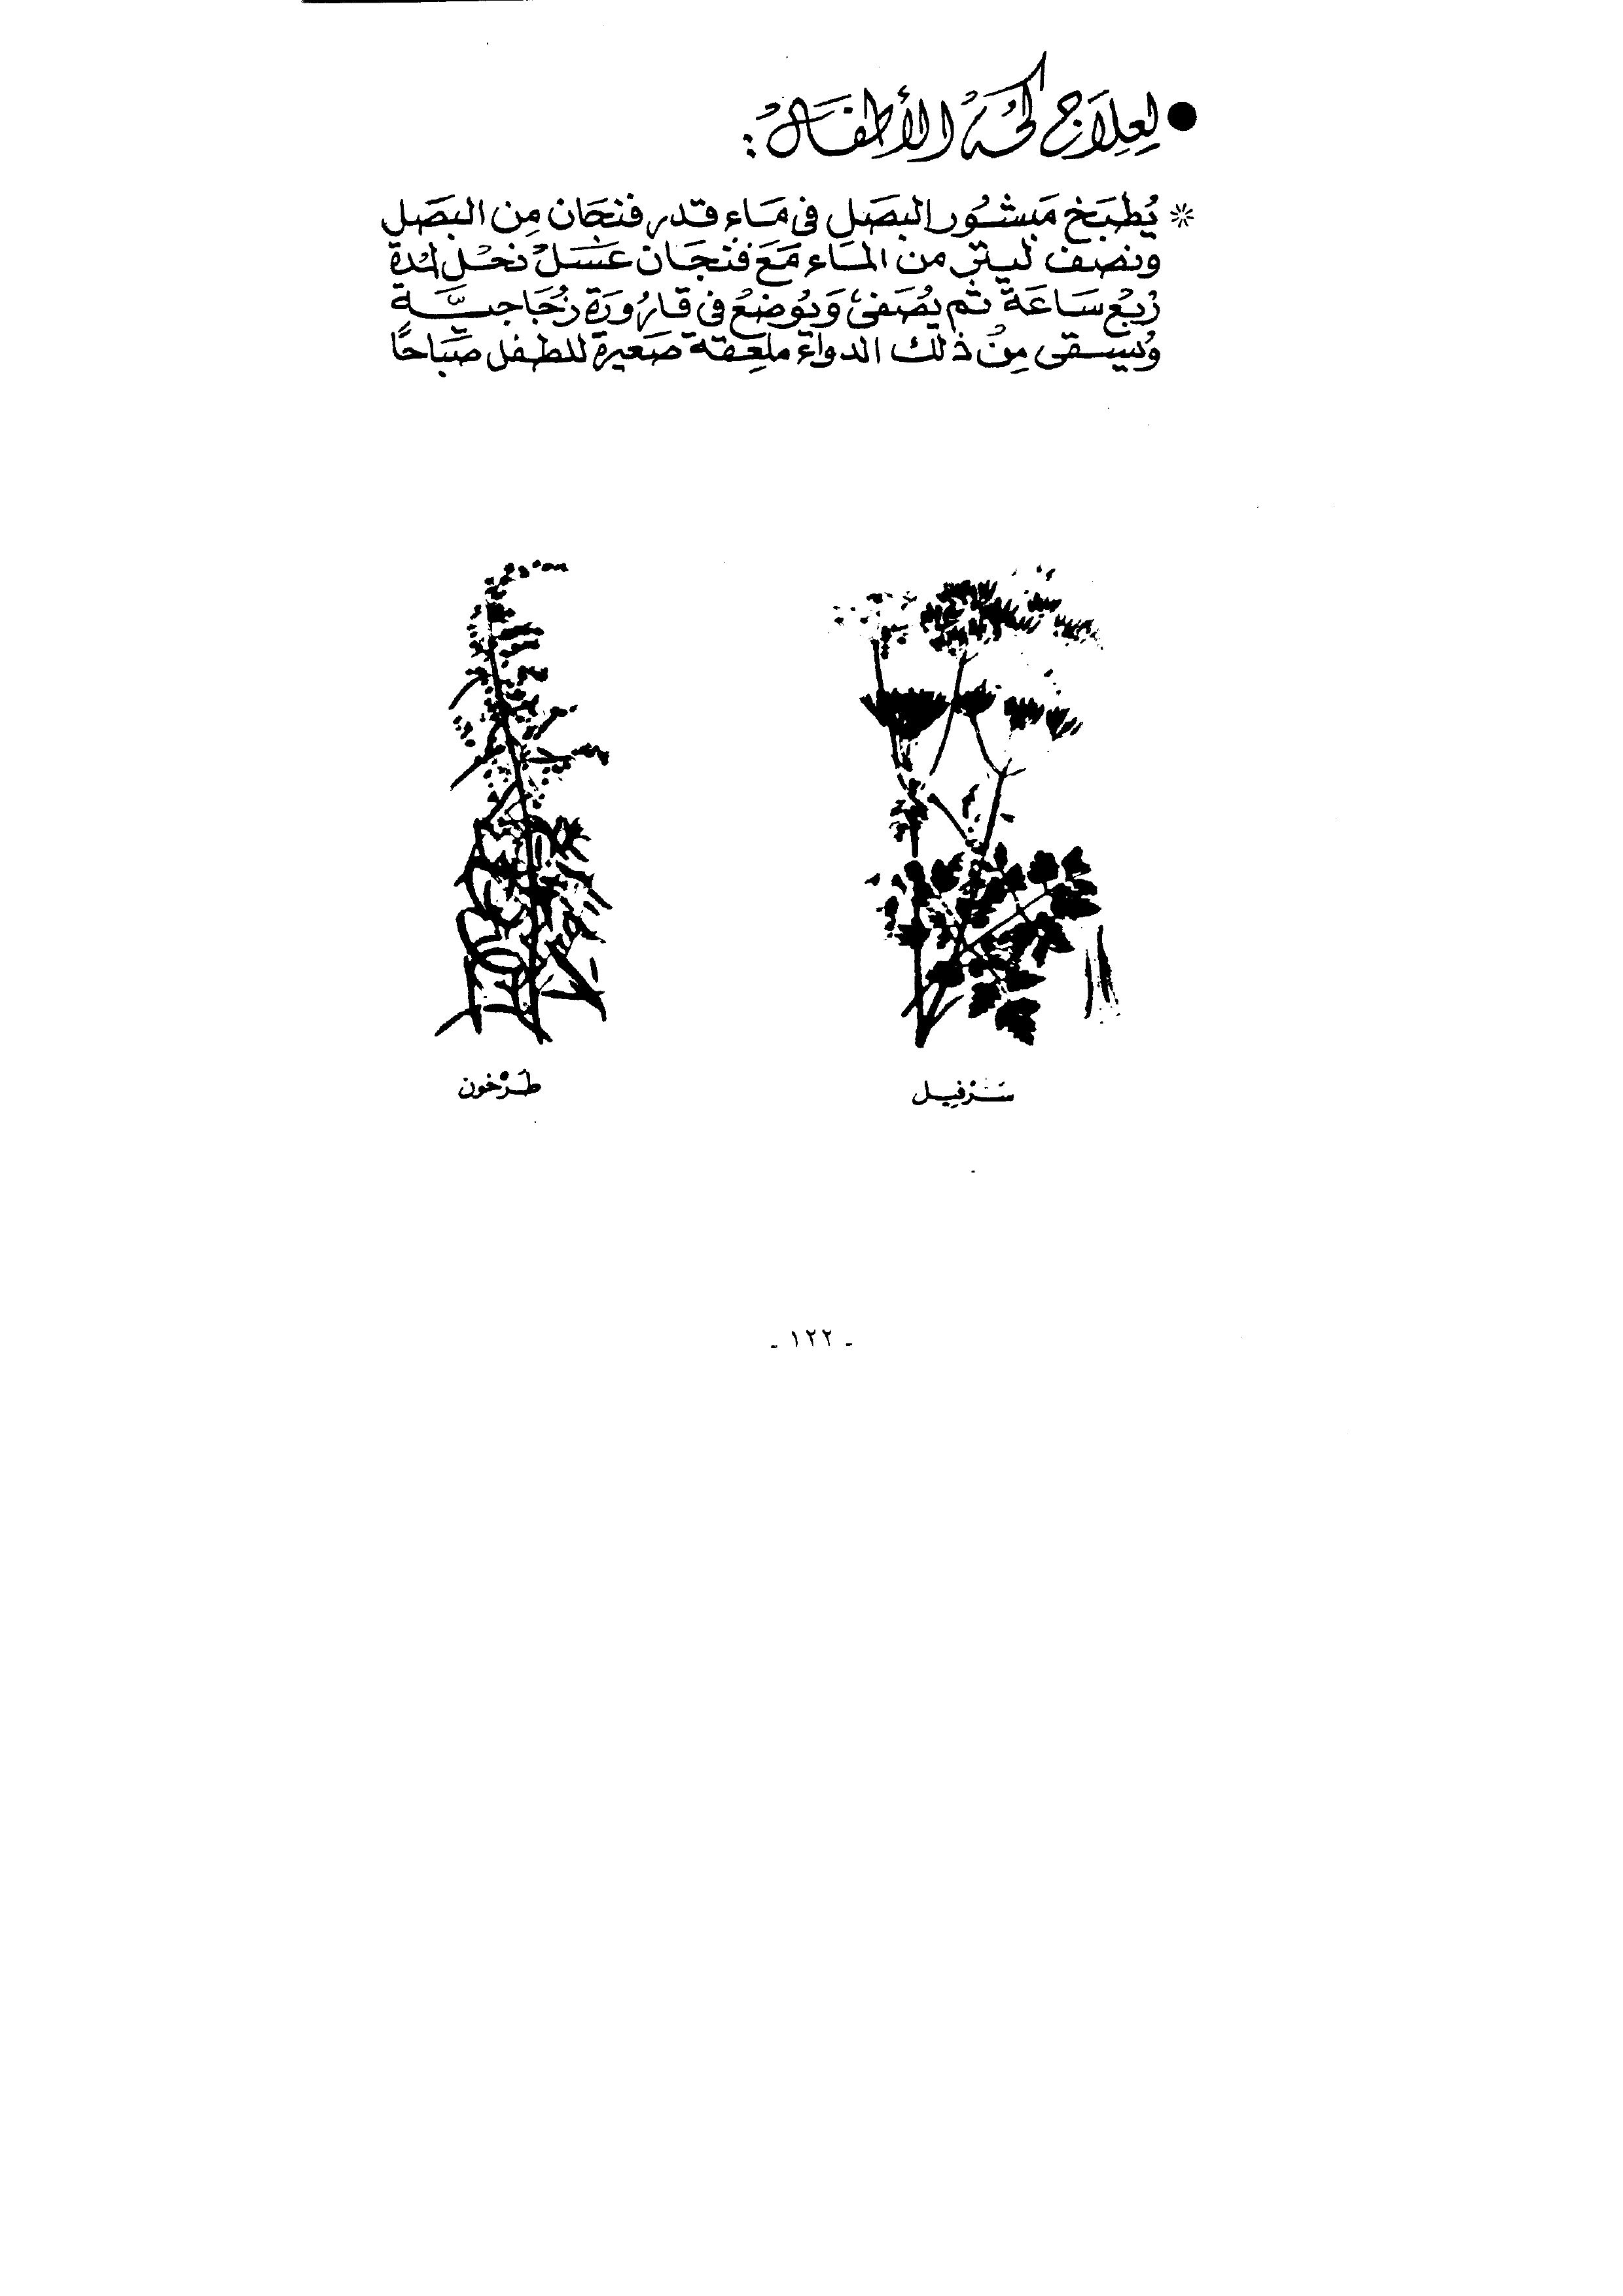 ● لِعِلَاج كحَّة الأطفَال :
* يُطبَخ مَبشُور البصَل في مَاء قدر فنجَان مِن البصَل
ونصف ليتر من الماء مَعَ فنجَان عَسَل نحْل لمُدة
رُبْع سَاعَة ثم يُصَفىٰ وَيُوضعُ في قارُورَة زُجَاجيَّة
ويُسقى مِنْ ذلك الدواء ملعِقة صَغيرة للطفل صَبَاحًا
سَرْفيل
طَرْخون
- ١٢٢ -